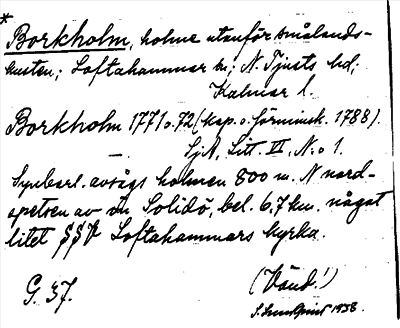 *
Borkholm, holme utanför smålands-
kusten; Loftahammar sn; N. Tjusts hd;
Kalmar l.
Borkholm 1771 o. 72 (kap. o. Förminsk. 1788).
SjA, Litt. VI, N:o 1.
—
Synbarl. avsågs holmen 800 m. N nord-
spetsen av ön Solidö, bel. 6,7 km. något
litet SSV Loftahammars kyrka.
G. 37.
(Vänd!)
S. Lundqvist 1938.